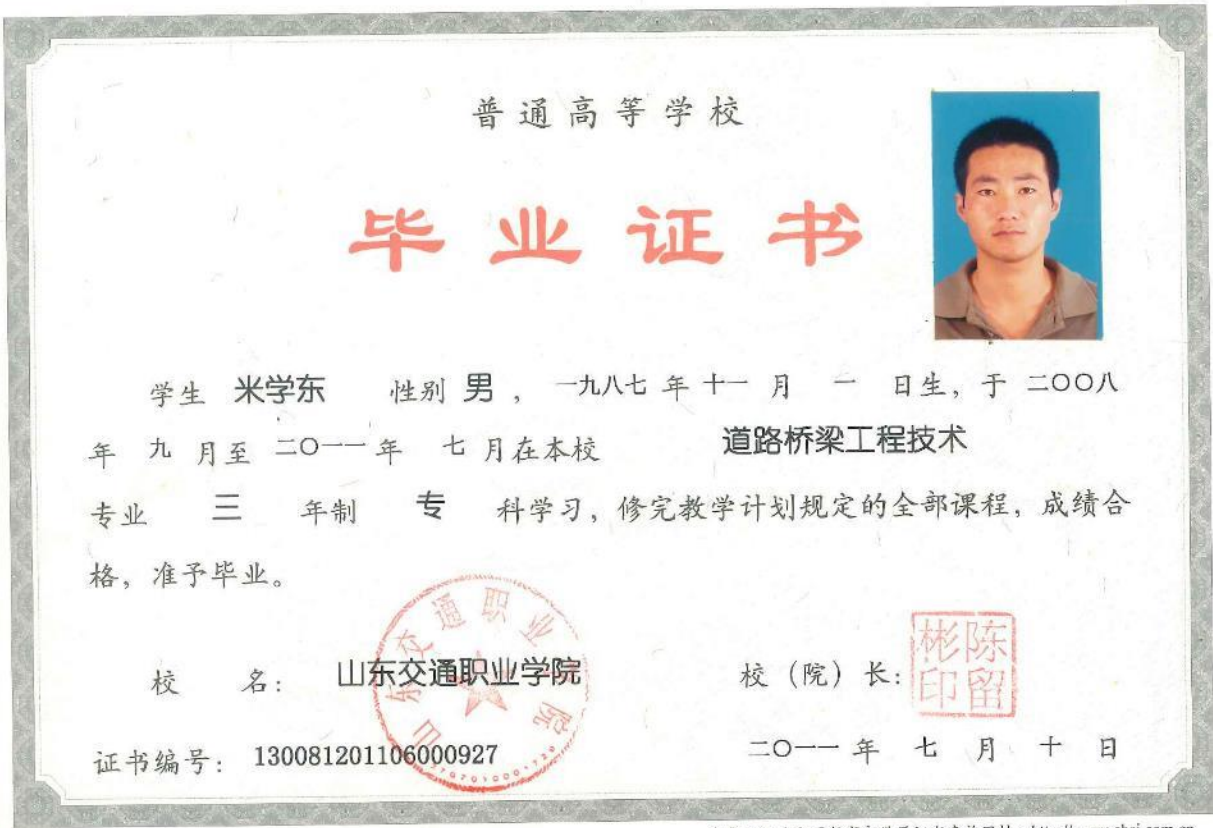 普通高等学校
毕业证书
学生 米学东 性别 男 , 一九八七 年 十一 月 一 日生, 于 二〇〇八
年 九 月至 二〇一一 年 七 月在本校 道路桥梁工程技术
专业 三 年制 专 科学习, 修完教学计划规定的全部课程, 成绩合
格, 准予毕业。
山东交通职业学院
校 名: 山东交通职业学院 校 (院) 长: 陈留彬印
证书编号: 130081201106000927 二〇一一 年 七 月 十 日